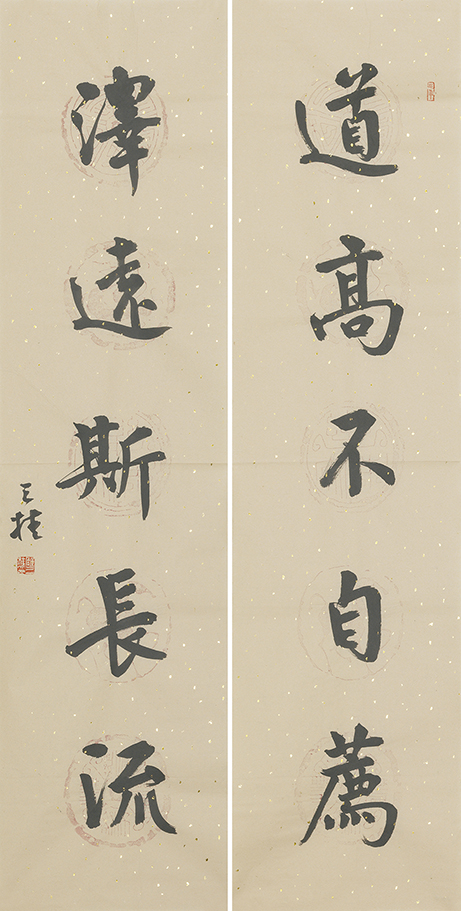 道高不自薦
澤遠斯長流